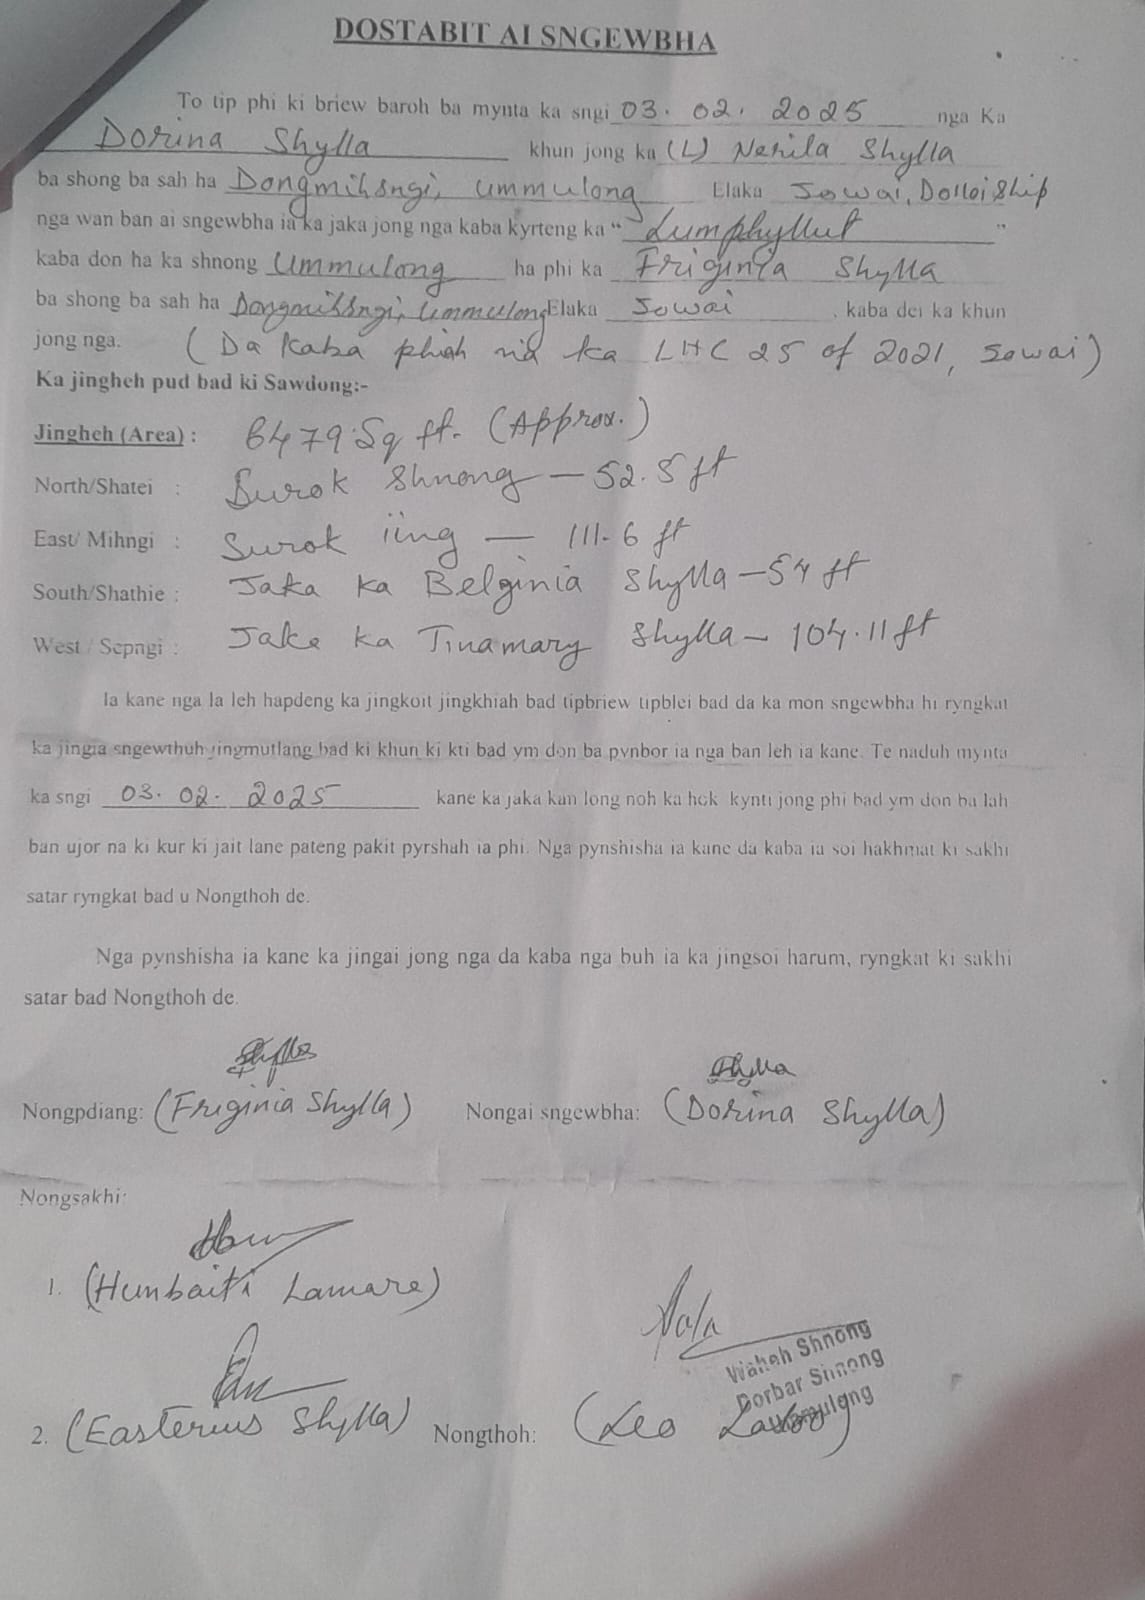 DOSTABIT AI SNGEWBHA
To tip phi ki briew baroh ba mynta ka sngi 03. 02. 2025 nga Ka
Dorina Shylla khun jong ka (L) Nerila Shylla
ba shong ba sah ha Dongmihsngi, Ummulong Elaka Jowai, Dolloiship
nga wan ban ai sngewbha ia ka jaka jong nga kaba kyrteng ka " Lumphyllut "
kaba don ha ka shnong Ummulong ha phi ka Friginia Shylla
ba shong ba sah ha Dongmihsngi, Ummulong Elaka Jowai , kaba dei ka khun
jong nga. (Da kaba phiah na ka LHC 25 of 2021, Jowai)
Ka jingheh pud bad ki Sawdong:-
Jingheh (Area) : 6479 Sq ft. (Approx.)
North/Shatei : Surok Shnong — 52.5 ft
East/ Mihngi : Surok iing — 111.6 ft
South/Shathie : Jaka ka Belginia Shylla — 54 ft
West / Sepngi : Jaka ka Tinamary Shylla — 104.11 ft
Ia kane nga la leh hapdeng ka jingkoit jingkhiah bad tipbriew tipblei bad da ka mon sngewbha hi ryngkat
ka jingia sngewthuh jingmutlang bad ki khun ki kti bad ym don ba pynbor ia nga ban leh ia kane. Te naduh mynta
ka sngi 03. 02. 2025 kane ka jaka kan long noh ka hok kynti jong phi bad ym don ba lah
ban ujor na ki kur ki jait lane pateng pakit pyrshah ia phi. Nga pynshisha ia kane da kaba ia soi hakhmat ki sakhi
satar ryngkat bad u Nongthoh de.
Nga pynshisha ia kane ka jingai jong nga da kaba nga buh ia ka jingsoi harum, ryngkat ki sakhi
satar bad Nongthoh de.
Shylla Shylla
Nongpdiang: (Friginia Shylla) Nongai sngewbha: (Dorina Shylla)
Nongsakhi:
1. (Hunbaiti Lamare)
Waheh Shnong
Dorbar Shnong
Ummulong
2. (Easterius Shylla) Nongthoh: (Leo